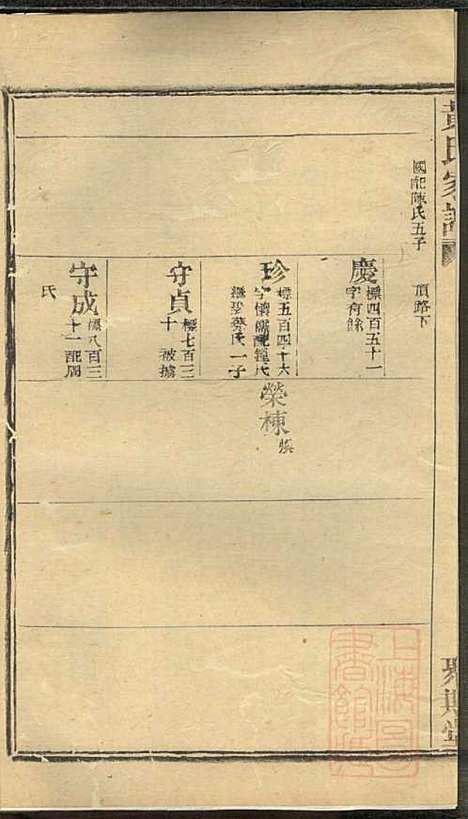 黃氏家譜
國配陳氏五子
頂路下
慶
標四百五十一
字有餘
珍
標五百四十六
字懷 配鍾氏
繼娶蔡氏一子
榮棟
守貞
標七百三
十 被擄
守成
標八百三
十一配周
氏
上海圖書館藏